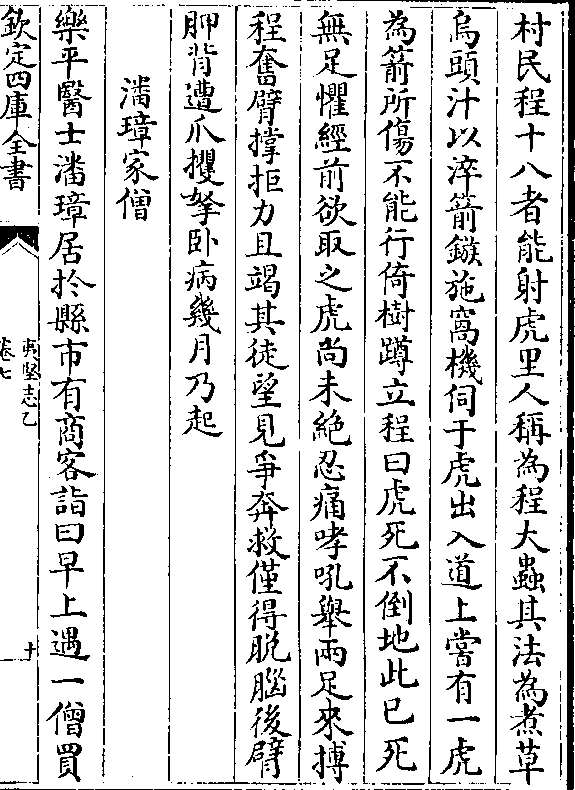 村民程十八者能射虎里人稱為程大蟲其法為煮草
烏頭汁以淬箭鏃施窩機伺于虎出入道上嘗有一虎
為箭所傷不能行倚樹蹲立程曰虎死不倒地此已死
無足懼經前欲取之虎尚未絶忍痛哮吼舉兩足來搏
程奮臂撐拒力且竭其徒望見爭奔救僅得脱腦後臂
胛背遭爪攫拏卧病幾月乃起
潘璋家僧
樂平醫士潘璋居於縣市有商客詣曰早上遇一僧買
欽定四庫全書
夷堅志乙
卷七
十